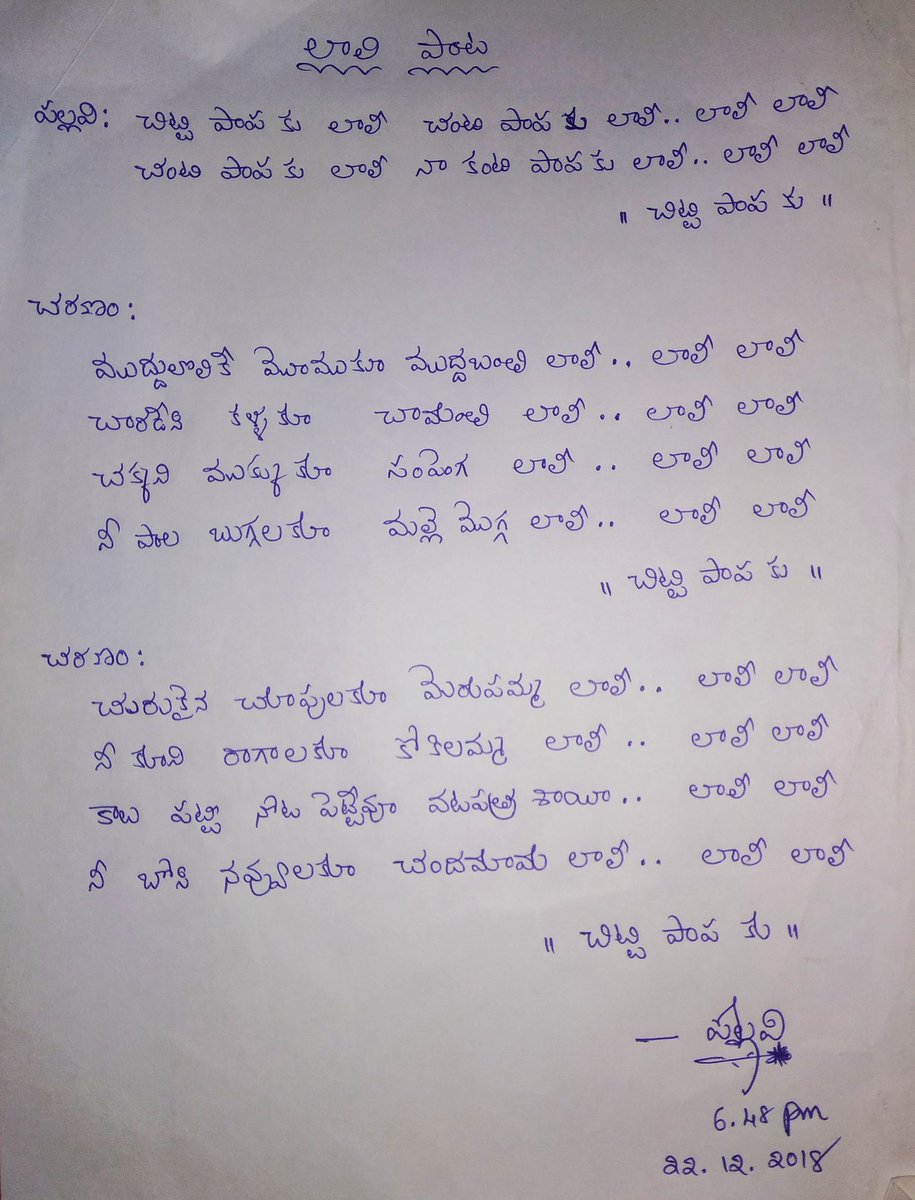 లాలి పాట
పల్లవి: చిట్టి పాప కు లాలీ చంటి పాప కు లాలీ.. లాలీ లాలీ
చంటి పాప కు లాలీ నా కంటి పాప కు లాలీ.. లాలీ లాలీ
" చిట్టి పాప కు "
చరణం:
ముద్దులొలికే మొముకూ ముద్దబంతి లాలీ.. లాలీ లాలీ
చారడేసి కళ్ళకూ చామంతి లాలీ.. లాలీ లాలీ
చక్కని ముక్కుకూ సంపెంగ లాలీ.. లాలీ లాలీ
నీ పాల బుగ్గలకూ మల్లె మొగ్గ లాలీ.. లాలీ లాలీ
" చిట్టి పాప కు "
చరణం:
చురుకైన చూపులకూ మెరుపమ్మ లాలీ.. లాలీ లాలీ
నీ కూని రాగాలకూ కోకిలమ్మ లాలీ.. లాలీ లాలీ
కాలు పట్టి నోట పెట్టేవూ వటపత్ర శాయీ.. లాలీ లాలీ
నీ బోసి నవ్వులకూ చందమామ లాలీ.. లాలీ లాలీ
" చిట్టి పాప కు "
— పల్లవి
6.48 pm
22.12.2018